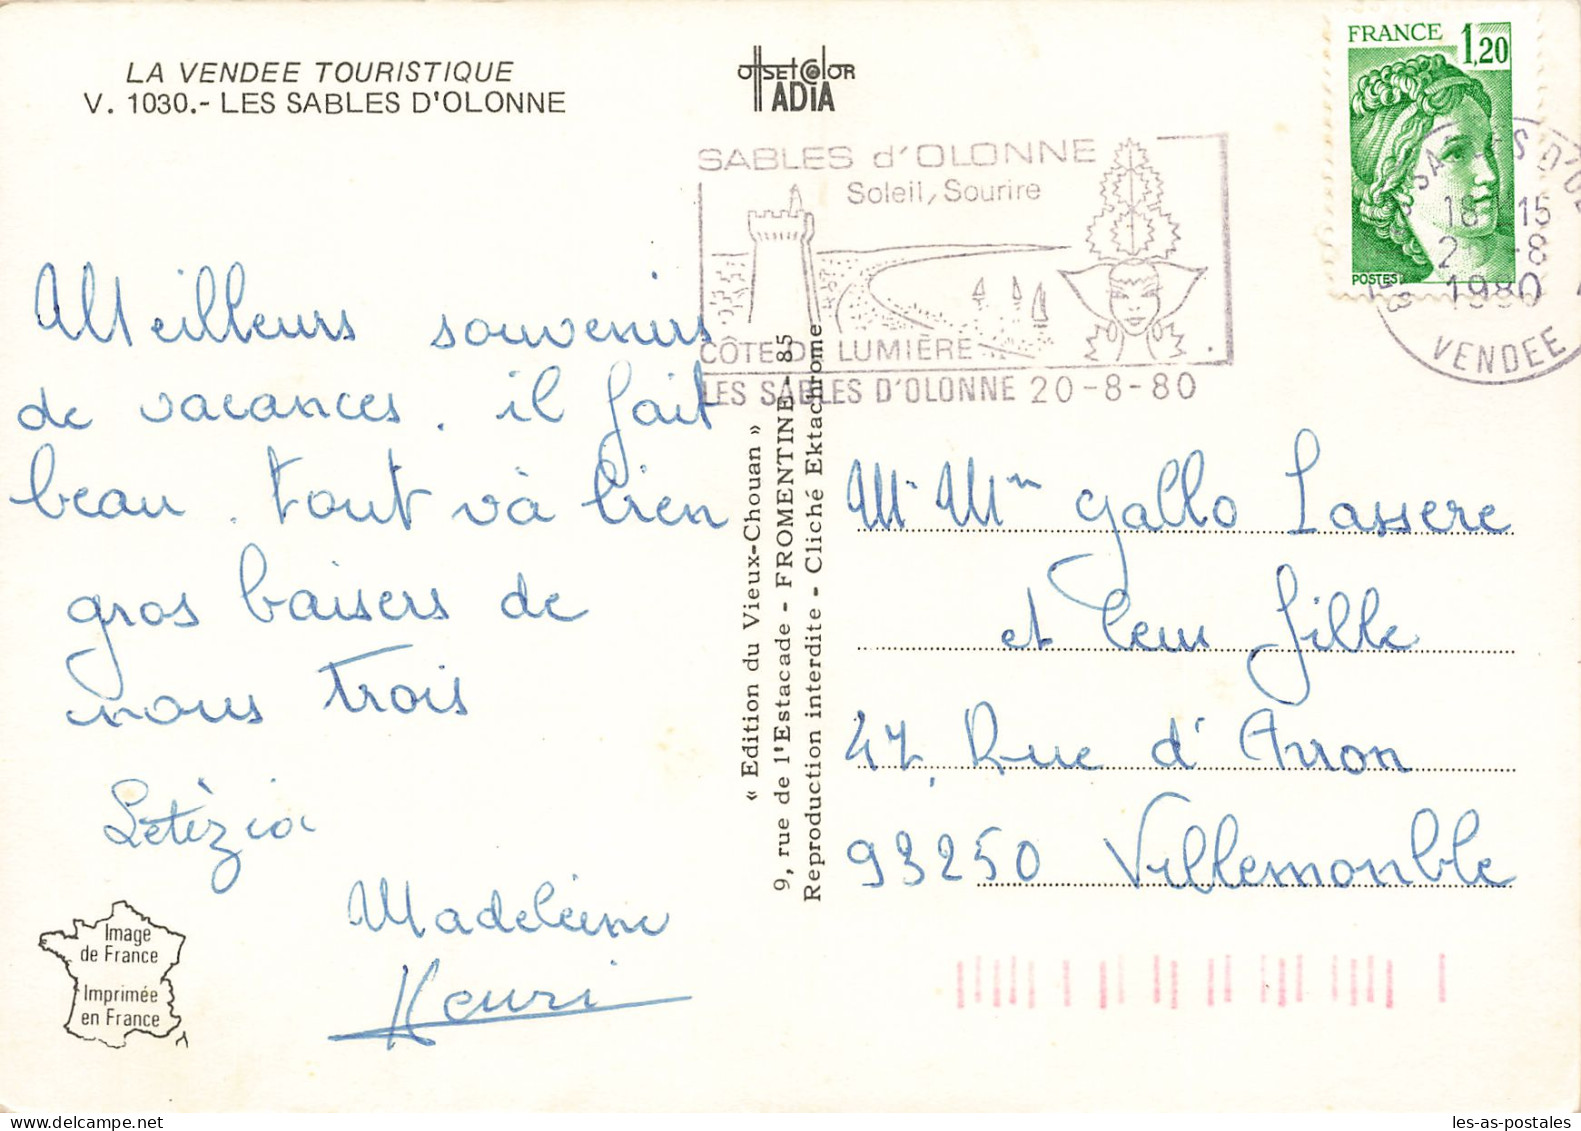 LA VENDEE TOURISTIQUE
V. 1030.- LES SABLES D'OLONNE
OffsetColor
ADIA
FRANCE 1,20
POSTES
SABLES d'OLONNE
Soleil, Sourire
CÔTE DE LUMIÈRE
LES SABLES D'OLONNE 20-8-80
18 15
-8
1980
VENDEE
Meilleurs souvenirs
de vacances. il fait
beau. tout và bien
gros baisers de
nous trois
Letèzia
Madeleine
Henri
Image
de France
Imprimée
en France
« Edition du Vieux-Chouan »
9, rue de l'Estacade - FROMENTINE - 85
Reproduction interdite - Cliché Ektachrome
Mr Mm Gallo Lassere
et leur fille
47, Rue d'Avron
93250 Villemonble
les-as-postales